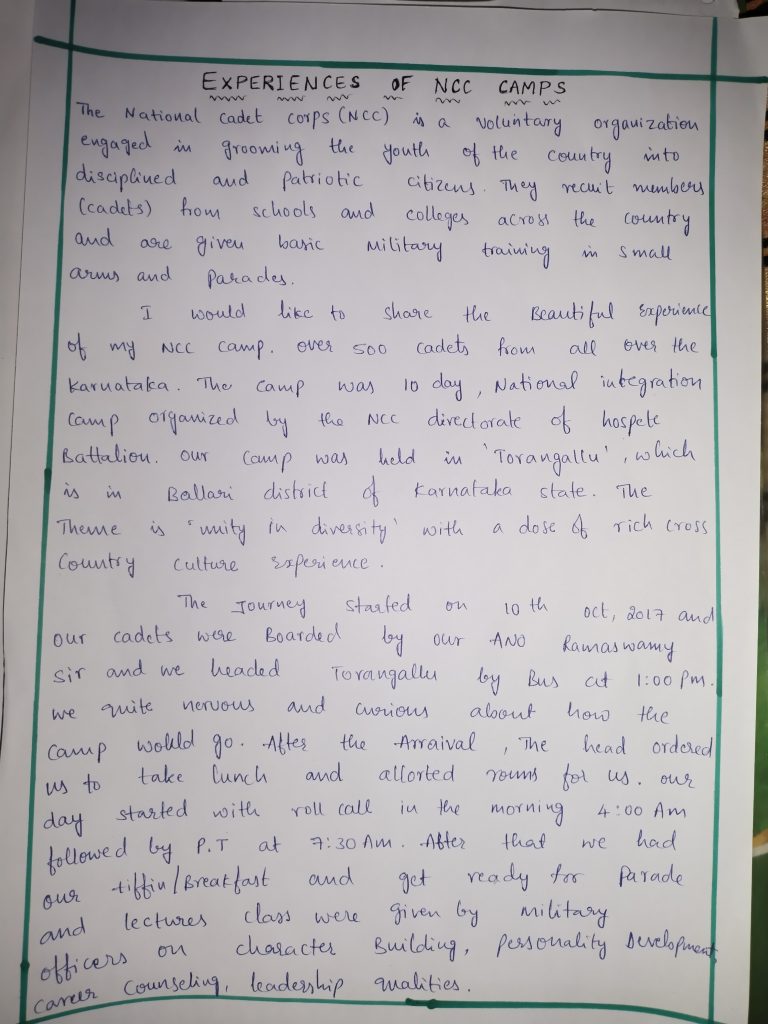 EXPERIENCES OF NCC CAMPS
The National cadet corps (NCC) is a voluntary organization
engaged in grooming the youth of the country into
disciplined and patriotic citizens. They recuit members
(cadets) from schools and colleges across the country
and are given basic military training in small
arms and parades.
I would like to share the Beautiful Experience
of my NCC camp. over 500 cadets from all over the
Karnataka. The camp was 10 day, National integration
camp organized by the NCC directorate of hospete
Battalion. our camp was held in 'Torangallu', which
is in Ballari district of Karnataka state. The
Theme is 'unity in diversity' with a dose of rich cross
Country culture Experience.
The Journey started on 10th oct, 2017 and
our cadets were Boarded by our ANO Ramaswamy
sir and we headed Torangallu by Bus at 1:00 pm.
we quite nervous and curious about how the
camp would go. After the Arraival, The head ordered
us to take lunch and allorted rooms for us. our
day started with roll call in the morning 4:00 Am
followed by P.T at 7:30 Am. After that we had
our tiffin/Breakfast and get ready for Parade
and lectures class were given by military
officers on character Building, personality Development,
career counseling, leadership qualities.